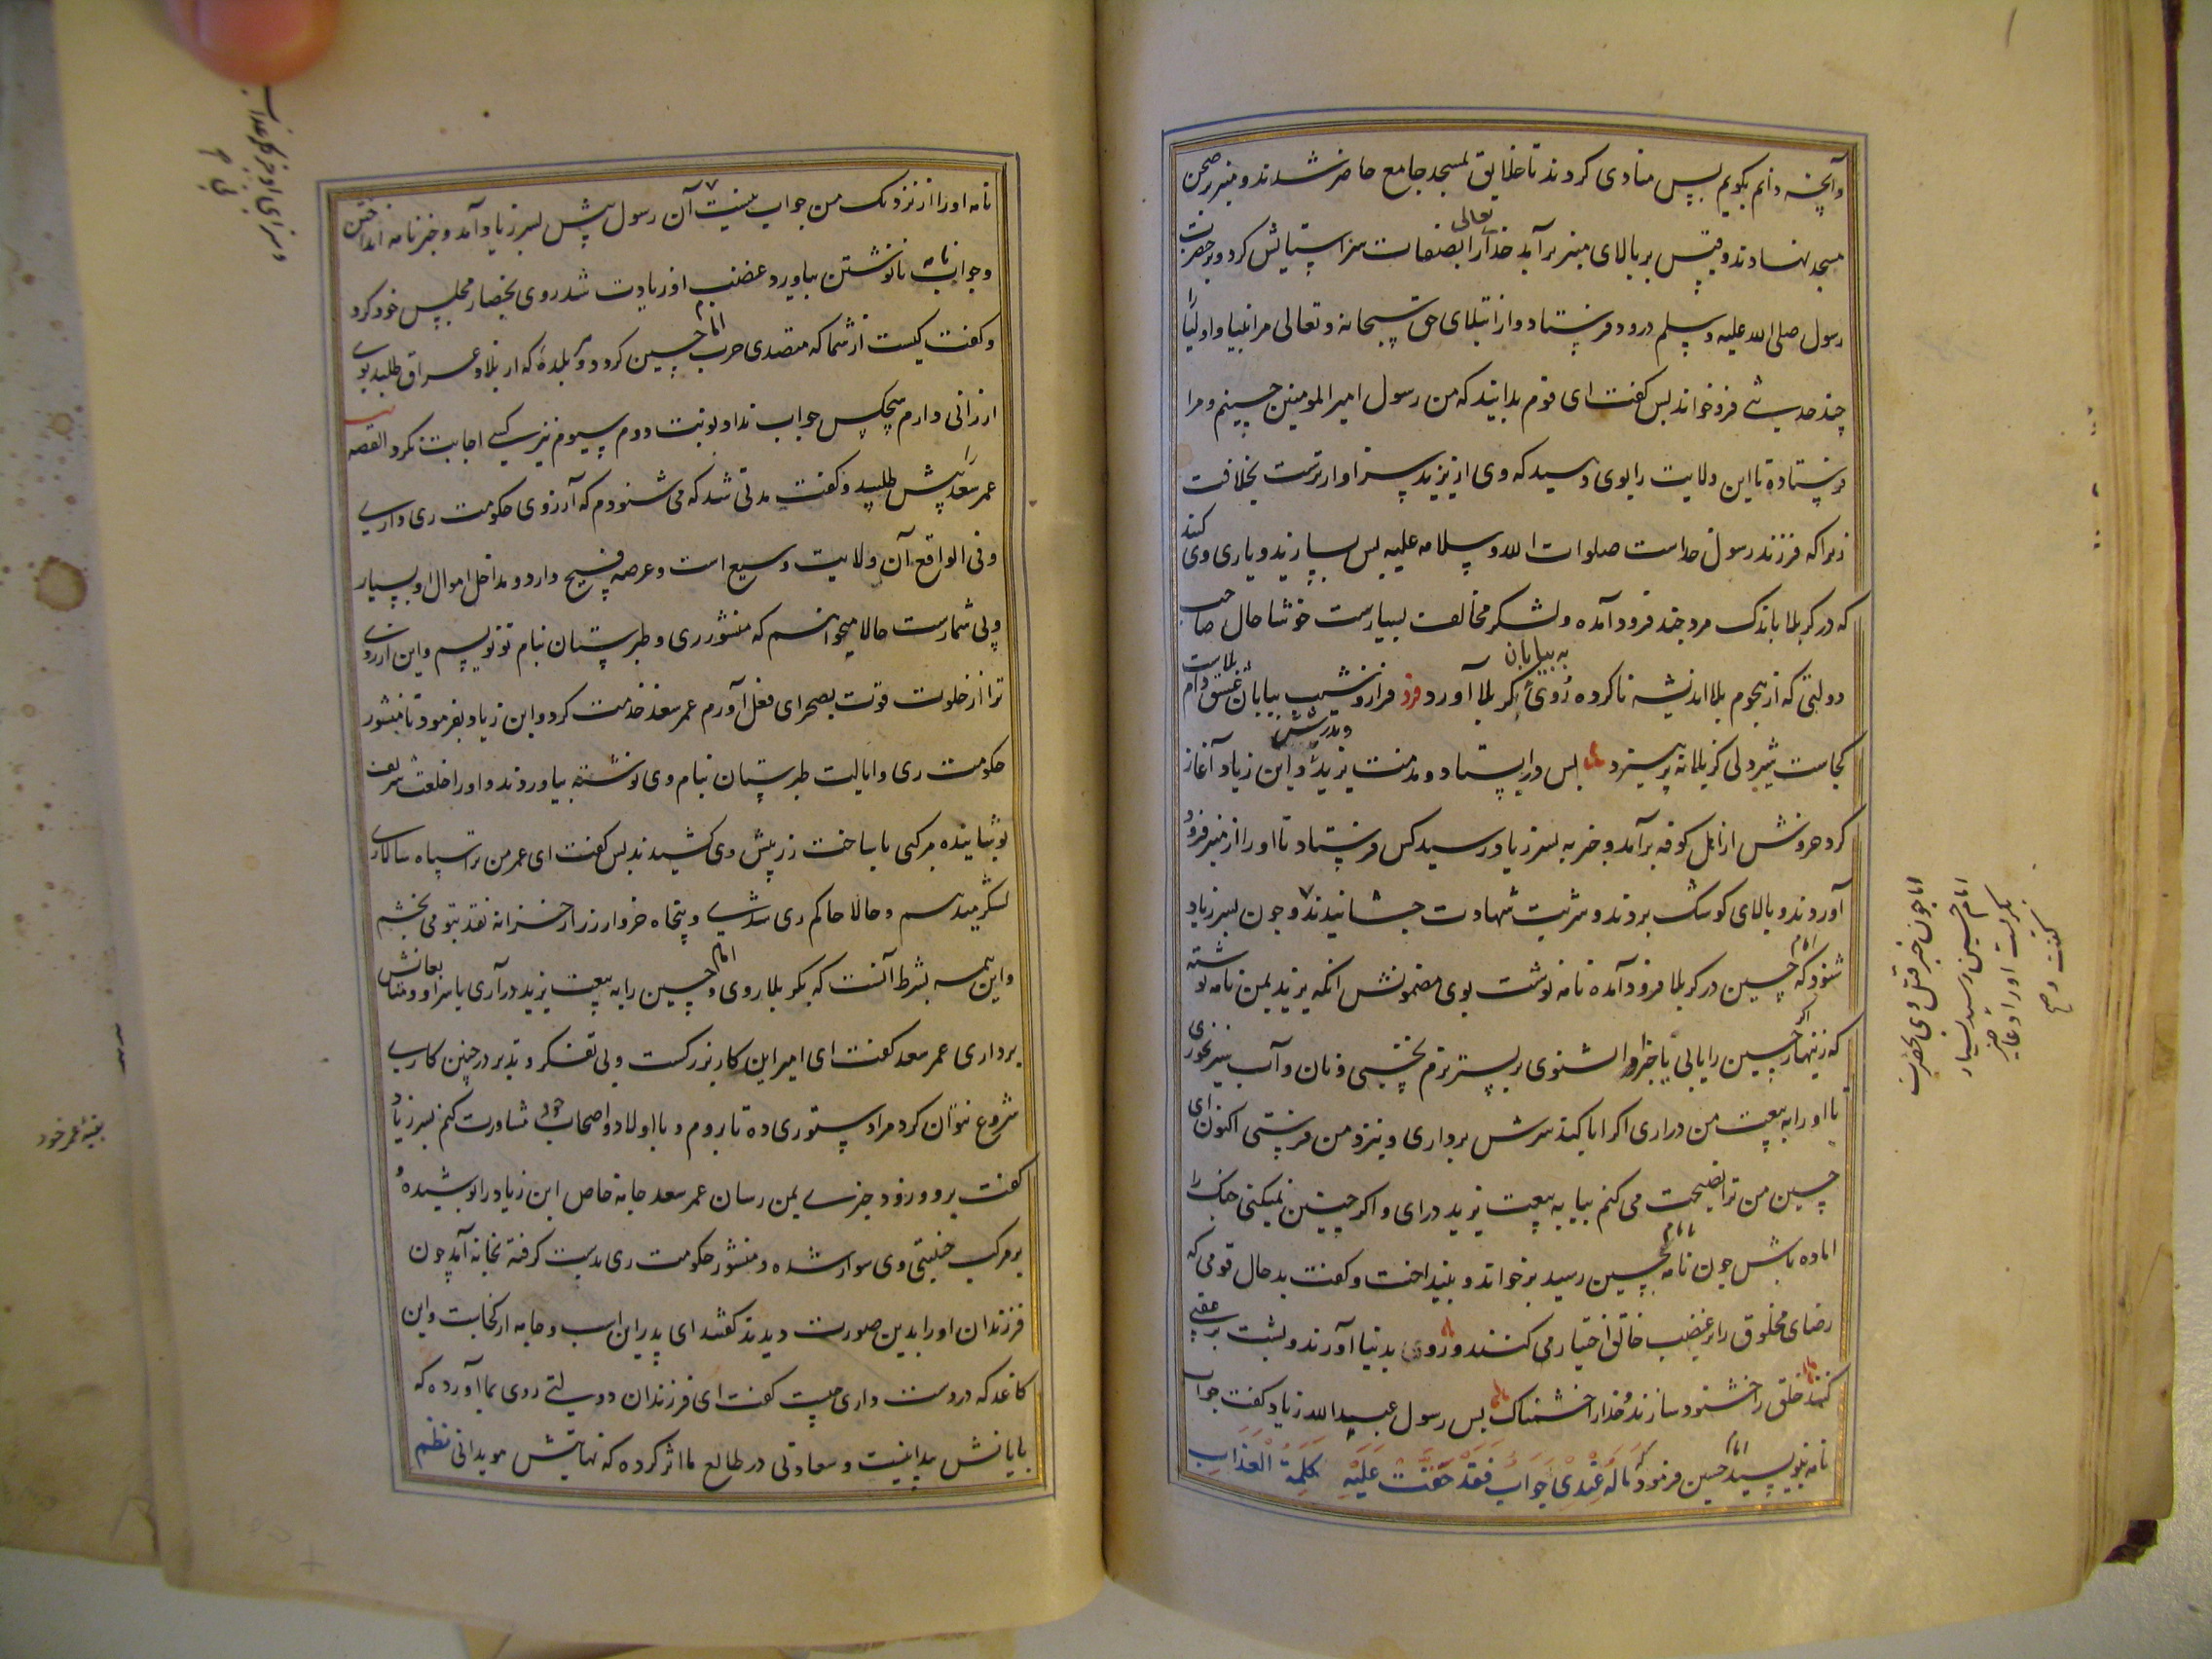 وآنچه دانم بکویم پس منادی کردند تا خلایق بمسجد جامع حاضر شدند و منبر در صحن
مسجد نهادند و قیس بر بالای منبر برآمد خدای تعالی را بصفات سزا ستایش کرد و بر حضرت
رسول صلی الله علیه وسلم درود فرستاد و از ابتلای حق سبحانه و تعالی مر انبیا و اولیا را
چند حدیثی فرو خواند پس کفت ای قوم بدانید که من رسول امیر المومنین حسینم و مرا
فرستاده تا این ولایت را بوی دهید که وی از یزید سزاوارترست بخلافت
زیرا که فرزند رسول خداست صلوات الله وسلامه علیه پس بسپارند و یاری وی کنند
که در کربلا باندک مردی چند فرود آمده و لشکر مخالف بسیارست خوشا حال صاحب
دولتی که از هجوم بلا اندیشه ناکرده روی به بیابان کربلا آورد فرد فراز و نشیب بیابان عشق دام بلاست
کجاست شیردلی کز بلا نپرهیزد پس در ایستاد و مذمت یزید و پدرش و ابن زیاد آغاز
کرد خروش از اهل کوفه برآمد و خبر به پسر زیاد رسید کس فرستاد تا او را از منبر فرود
آوردند و بالای کوشک بردند و شربت شهادت چشانیدند و چون پسر زیاد
شنود که امام حسین در کربلا فرود آمده نامه نوشت بوی مضمونش آنکه یزید بمن نامه نوشته
که زینهار اکر حسین را یابی تا خبر او نشنوی بر بستر نرم نخسبی و نان و آب سیر نخوری
تا او را به بیعت من دراری اکر ابا کند سرش برداری و نزد من فرستی اکنون ای
حسین من ترا نصیحت می کنم بیا به بیعت یزید درای و اکر چنین نمیکنی جنک را
اماده باش چون نامه بامام حسین رسید برخواند و بینداخت و کفت بدحال قومی که
رضای مخلوق را بر غضب خالق اختیار می کنند و روی بدنیا آورند و پشت بر عقبی
کنند خلق را خشنود سازند و خدا را خشمناک پس رسول عبید الله زیاد کفت جواب
نامه بنویسید امام حسین فرمود که ما له عندی جواب فقد حقت علیه کلمة العذاب
اما چون خبر قتل وی بحضرت
امام حسین رسید بسیار
بکریست و او را دعای خیر
کفت
نامه او را از نزدیک من جواب نیست آن رسول پیش پسر زیاد آمد و خبر نامه انداختن
و جواب نامه نانوشتن بیاورد غضب او زیادت شد روی بحضار مجلس خود کرد
و کفت کیست از شما که متصدی حرب امام حسین کردد و هر بلده که از بلاد عراق طلبد بوی
ارزانی دارم هیچکس جواب نداد نوبت دوم و سیوم نیز کسی اجابت نکرد القصه
عمر سعد را پیش طلبید و کفت مدتی شد که می شنودم که آرزوی حکومت ری داری
و فی الواقع آن ولایت وسیع است و عرصه فسیح دارد و مداخل اموال او بسیار
و بی شمارست حالا میخواهم که منشور ری و طبرستان بنام تو نویسم و این آرزوی
ترا از خلوت قوت بصحرای فعل آورم عمر سعد خدمت کرد و ابن زیاد بفرمود تا منشور
حکومت ری و ایالت طبرستان بنام وی نوشته بیاوردند و او را خلعت شریف
پوشانیده مرکبی با ساخت زر پیش وی کشیدند پس کفت ای عمر من ترا سپاه سالاری
لشکر میدهم و حالا حاکم ری شدی و پنجاه خروار زر از خزانه نقد بتو می بخشم
و این همه بشرط آنست که بکربلا روی و امام حسین را به بیعت یزید درآری یا سر او و متابعانش
برداری عمر سعد کفت ای امیر این کار بزرکست و بی تفکر و تدبر در چنین کاری
شروع نتوان کرد مرا دستوری ده تا بروم و با اولاد و اصحاب خود مشاورت کنم پسر زیاد
کفت برو و زود خبری بمن رسان عمر سعد جامه خاص ابن زیاد را پوشیده و
بر مرکب خنیبتی وی سوار شده و منشور حکومت ری بدست کرفته بخانه آمد چون
فرزندان او را بدین صورت دیدند کفتند ای پدر این اسب و جامه از کجاست و این
کاغذ که در دست داری چیست کفت ای فرزندان دولتی روی بما آورده که
پایانش پیدا نیست و سعادتی در طالع ما اثر کرده که نهایتش هویدا نی نظم